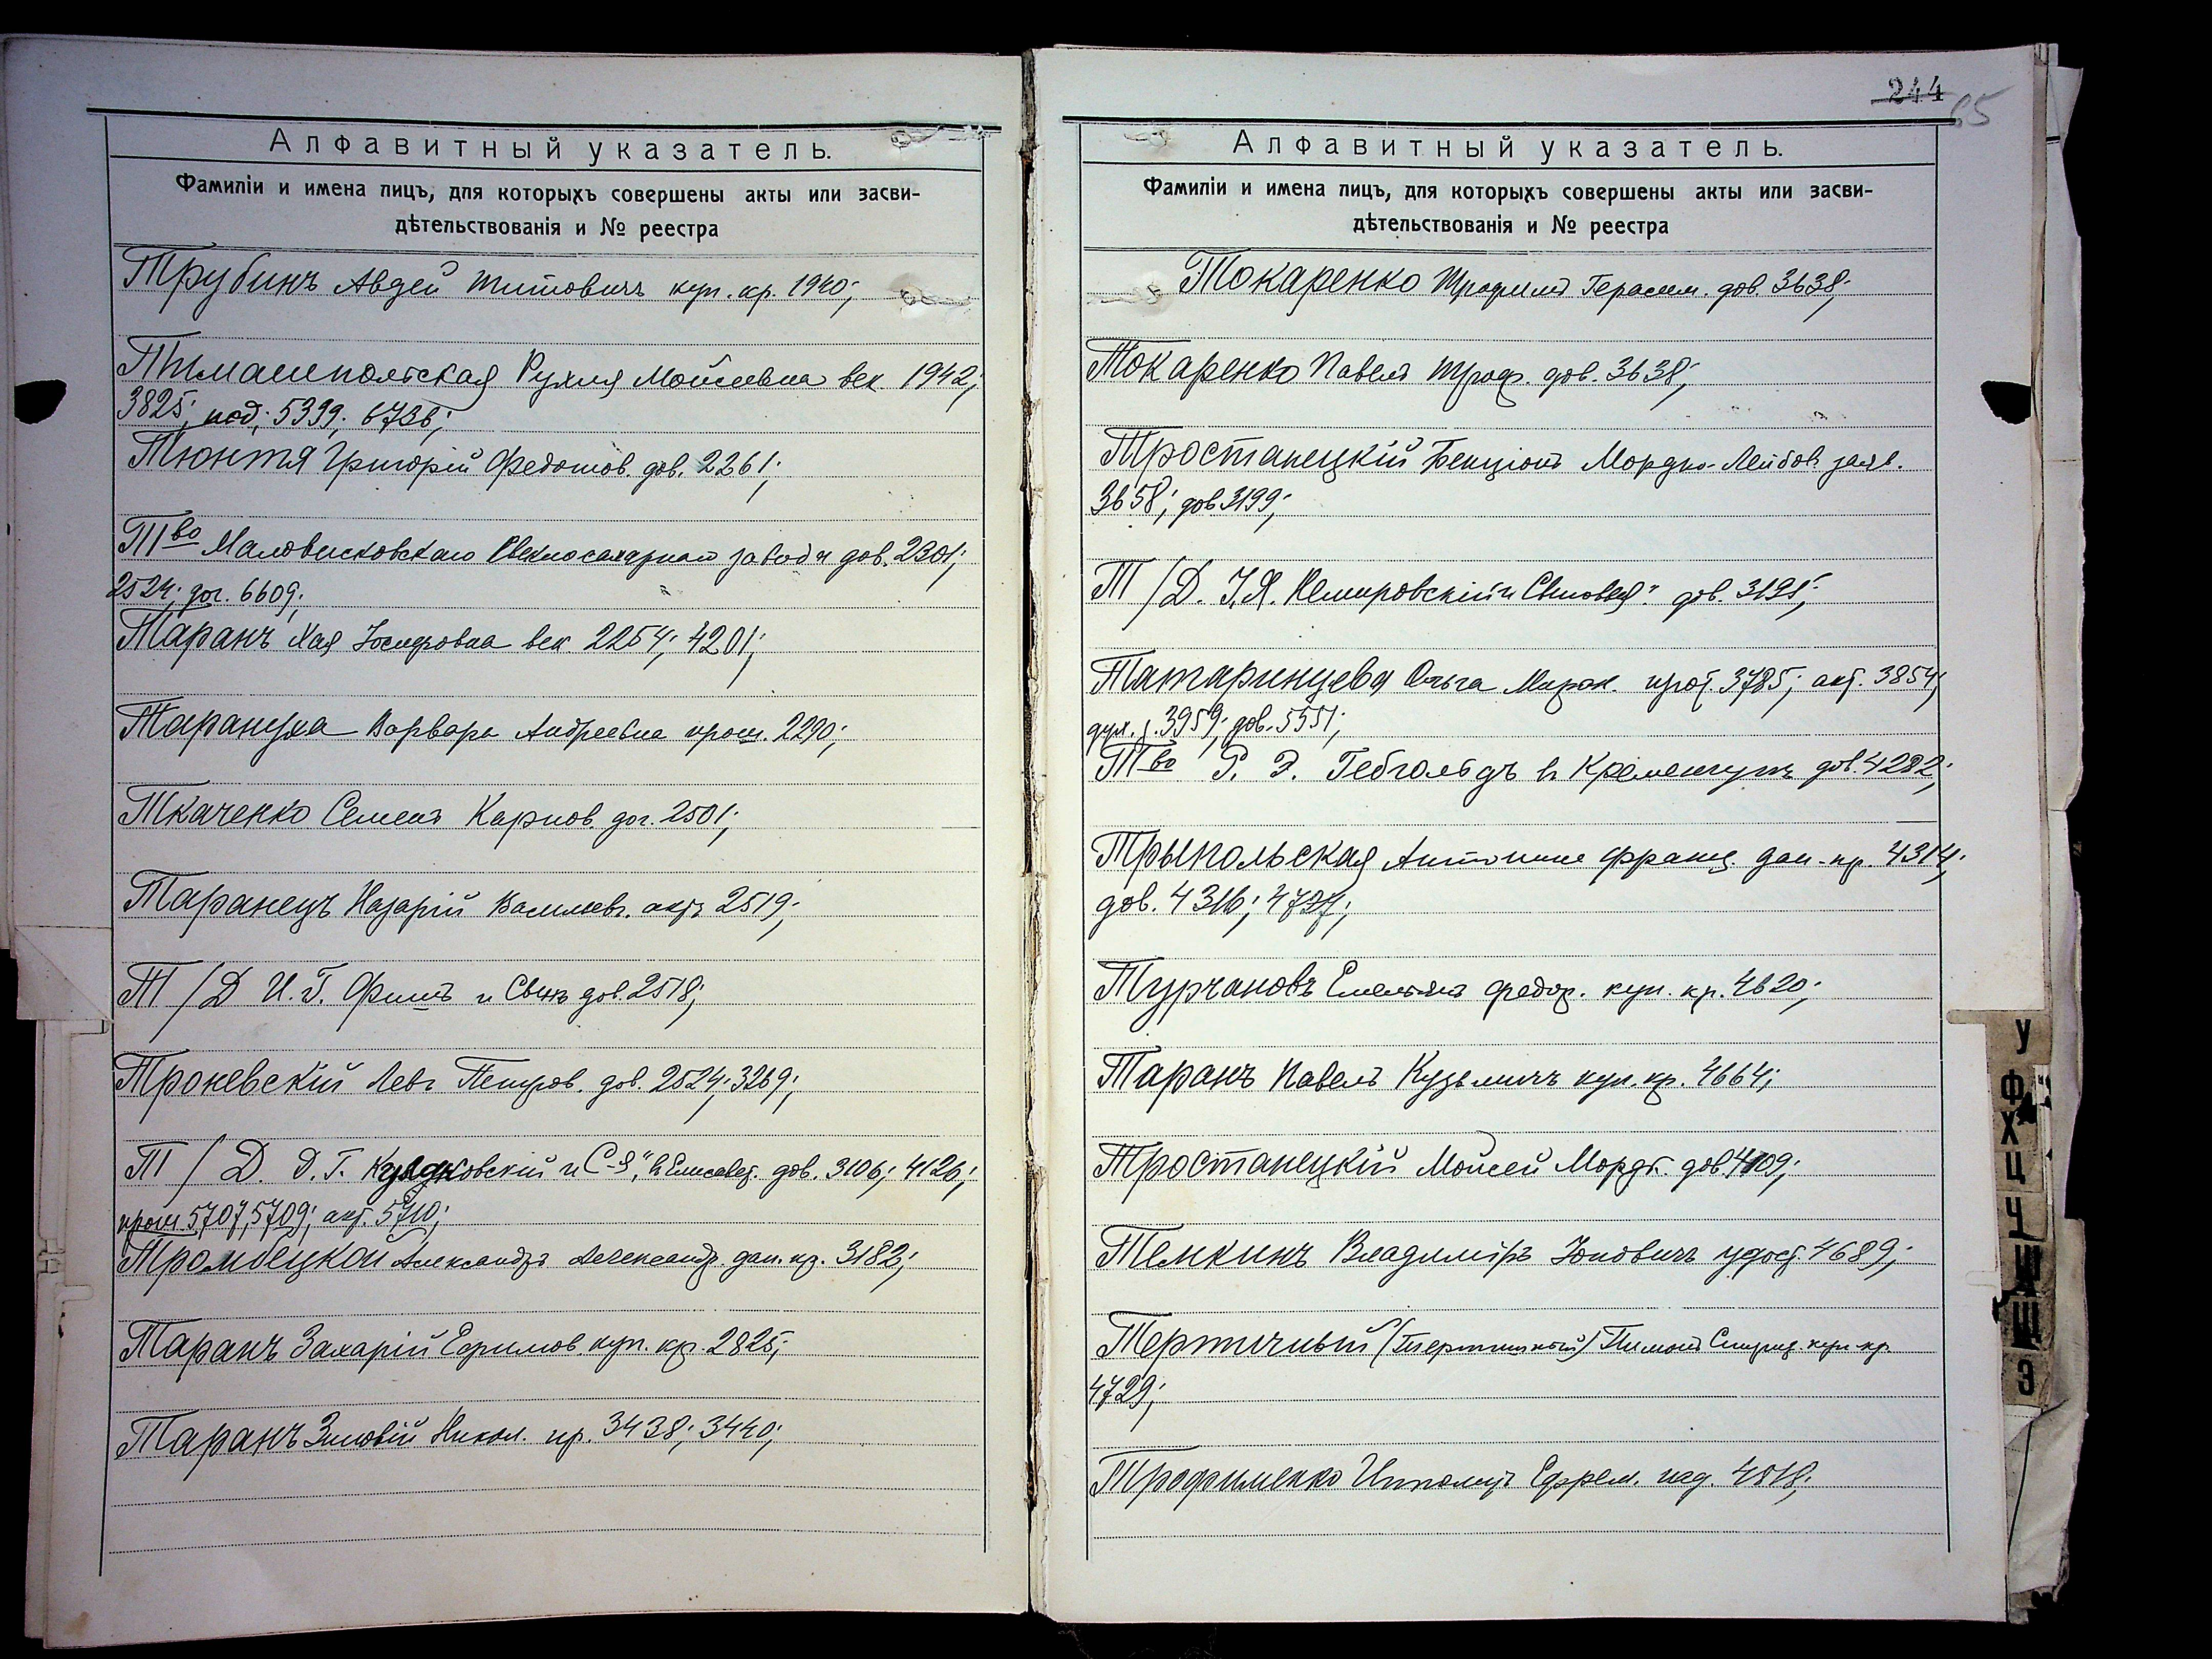 Алфавитный указатель.
Фамиліи и имена лицъ, для которыхъ совершены акты или засви-
дѣтельствованія и № реестра
Трубинъ Авдей Титовичъ куп. кр. 1940;
Рухля Моисеевна век. 1942;
3825; под; 5399; 6736;
Тюнтя Григорій Федотов. дов. 2261;
Тво Маловисковскаго Свеклосахарнаго завода дов. 2301;
2524; дог. 6609;
Таранъ Хая Іосифовна век. 2254; 4201;
Тарануха Варвара Андреевна прош. 2290;
Ткаченко Семенъ Карпов. дог. 2501;
Таранецъ Назарій Васильев. актъ 2519;
Т/Д И. Г. и Сынъ дов. 2518;
Троневскій Левъ Петров. дов. 2524; 3269;
Т/Д. Д. Г. и С-я" въ Елисавет. дов. 3106; 4126;
прош. 5707, 5709; акт. 5710;
Тромбецкой Александръ Александр. дан. кр. 3182;
Таранъ Захарій Ефимов. куп. кр. 2825;
Таранъ Зиновій Никол. пр. 3438; 3440;
244
65
Алфавитный указатель.
Фамиліи и имена лицъ, для которыхъ совершены акты или засви-
дѣтельствованія и № реестра
Токаренко Трофимъ Герасим. дов. 3638;
Токаренко Павелъ Троф. дов. 3638;
Тростанецкій Бенціонъ Мордко-Лейбов. заяв.
3658; дов. 3199;
Т/Д. І. Я. Немировскій и Сыновья" дов. 3191;
Татаринцева Ольга Марк. прот. 3785; акт. 3854;
дух. з. 3959; дов. 5551;
Тво Р. Э. Гебгольдъ въ Кременчугѣ дов. 4282;
Трыпольская Антонина Франц. дан-кр. 4314;
дов. 4316; 4727;
Турчановъ Емельянъ Федор. куп. кр. 4620;
Таранъ Павелъ Кузьмичъ куп. кр. 4664;
Тростанецкій Мойсей Мордк. дов. 4109;
Темкинъ Владиміръ Іоновичъ удост. 4689;
Тертичный (Тертишный) Пимонъ Спирид. куп-кр.
4729;
Трофименко Ипполитъ Ефрем. 4818;
У
Ф
Х
Ц
Ч
Ш
Щ
Э